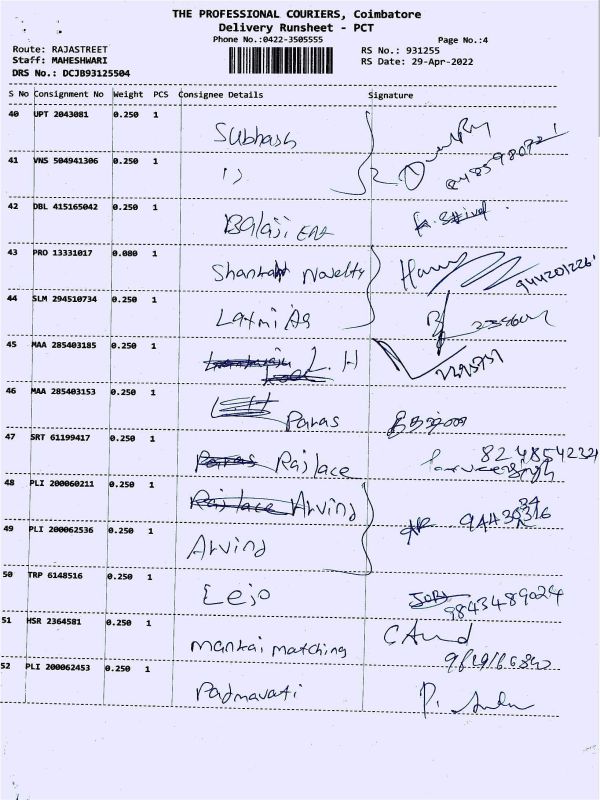 THE PROFESSIONAL COURIERS, Coimbatore
Delivery Runsheet - PCT
Phone No.:0422-3505555 Page No.:4
Route: RAJASTREET RS No.: 931255
Staff: MAHESHWARI RS Date: 29-Apr-2022
DRS No.: DCJB93125504
S No Consignment No Weight PCS Consignee Details Signature
40 UPT 2043081 0.250 1 Subhash
41 VNS 504941306 0.250 1 ''
42 DBL 415165042 0.250 1 Balaji
43 PRO 13331017 0.080 1 Shantah Novelty
44 SLM 294510734 0.250 1 Laxmi Ag
45 MAA 285403185 0.250 1 L. H
46 MAA 285403153 0.250 1 Paras
47 SRT 61199417 0.250 1 Paras Rajlace 8248542321
48 PLI 200060211 0.250 1 Rajlace Arvind
49 PLI 200062536 0.250 1 Arvind
50 TRP 6148516 0.250 1 Lejo 9843489024
51 HSR 2364581 0.250 1 mankai matching
52 PLI 200062453 0.250 1 Padmavati